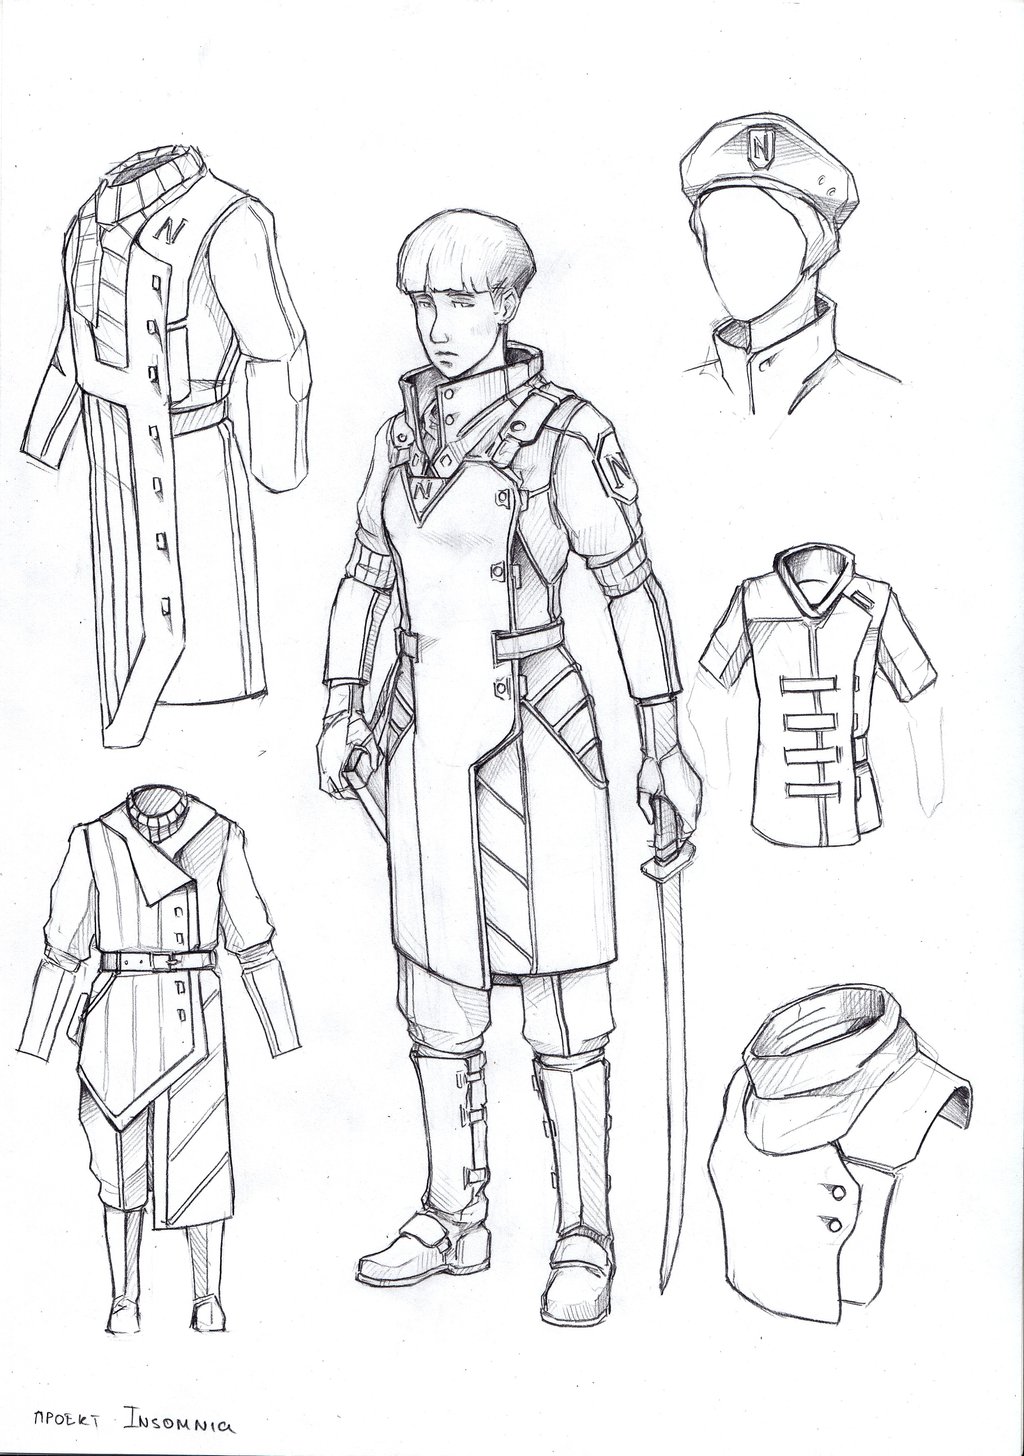 N
N
N
N
проект Insomnia